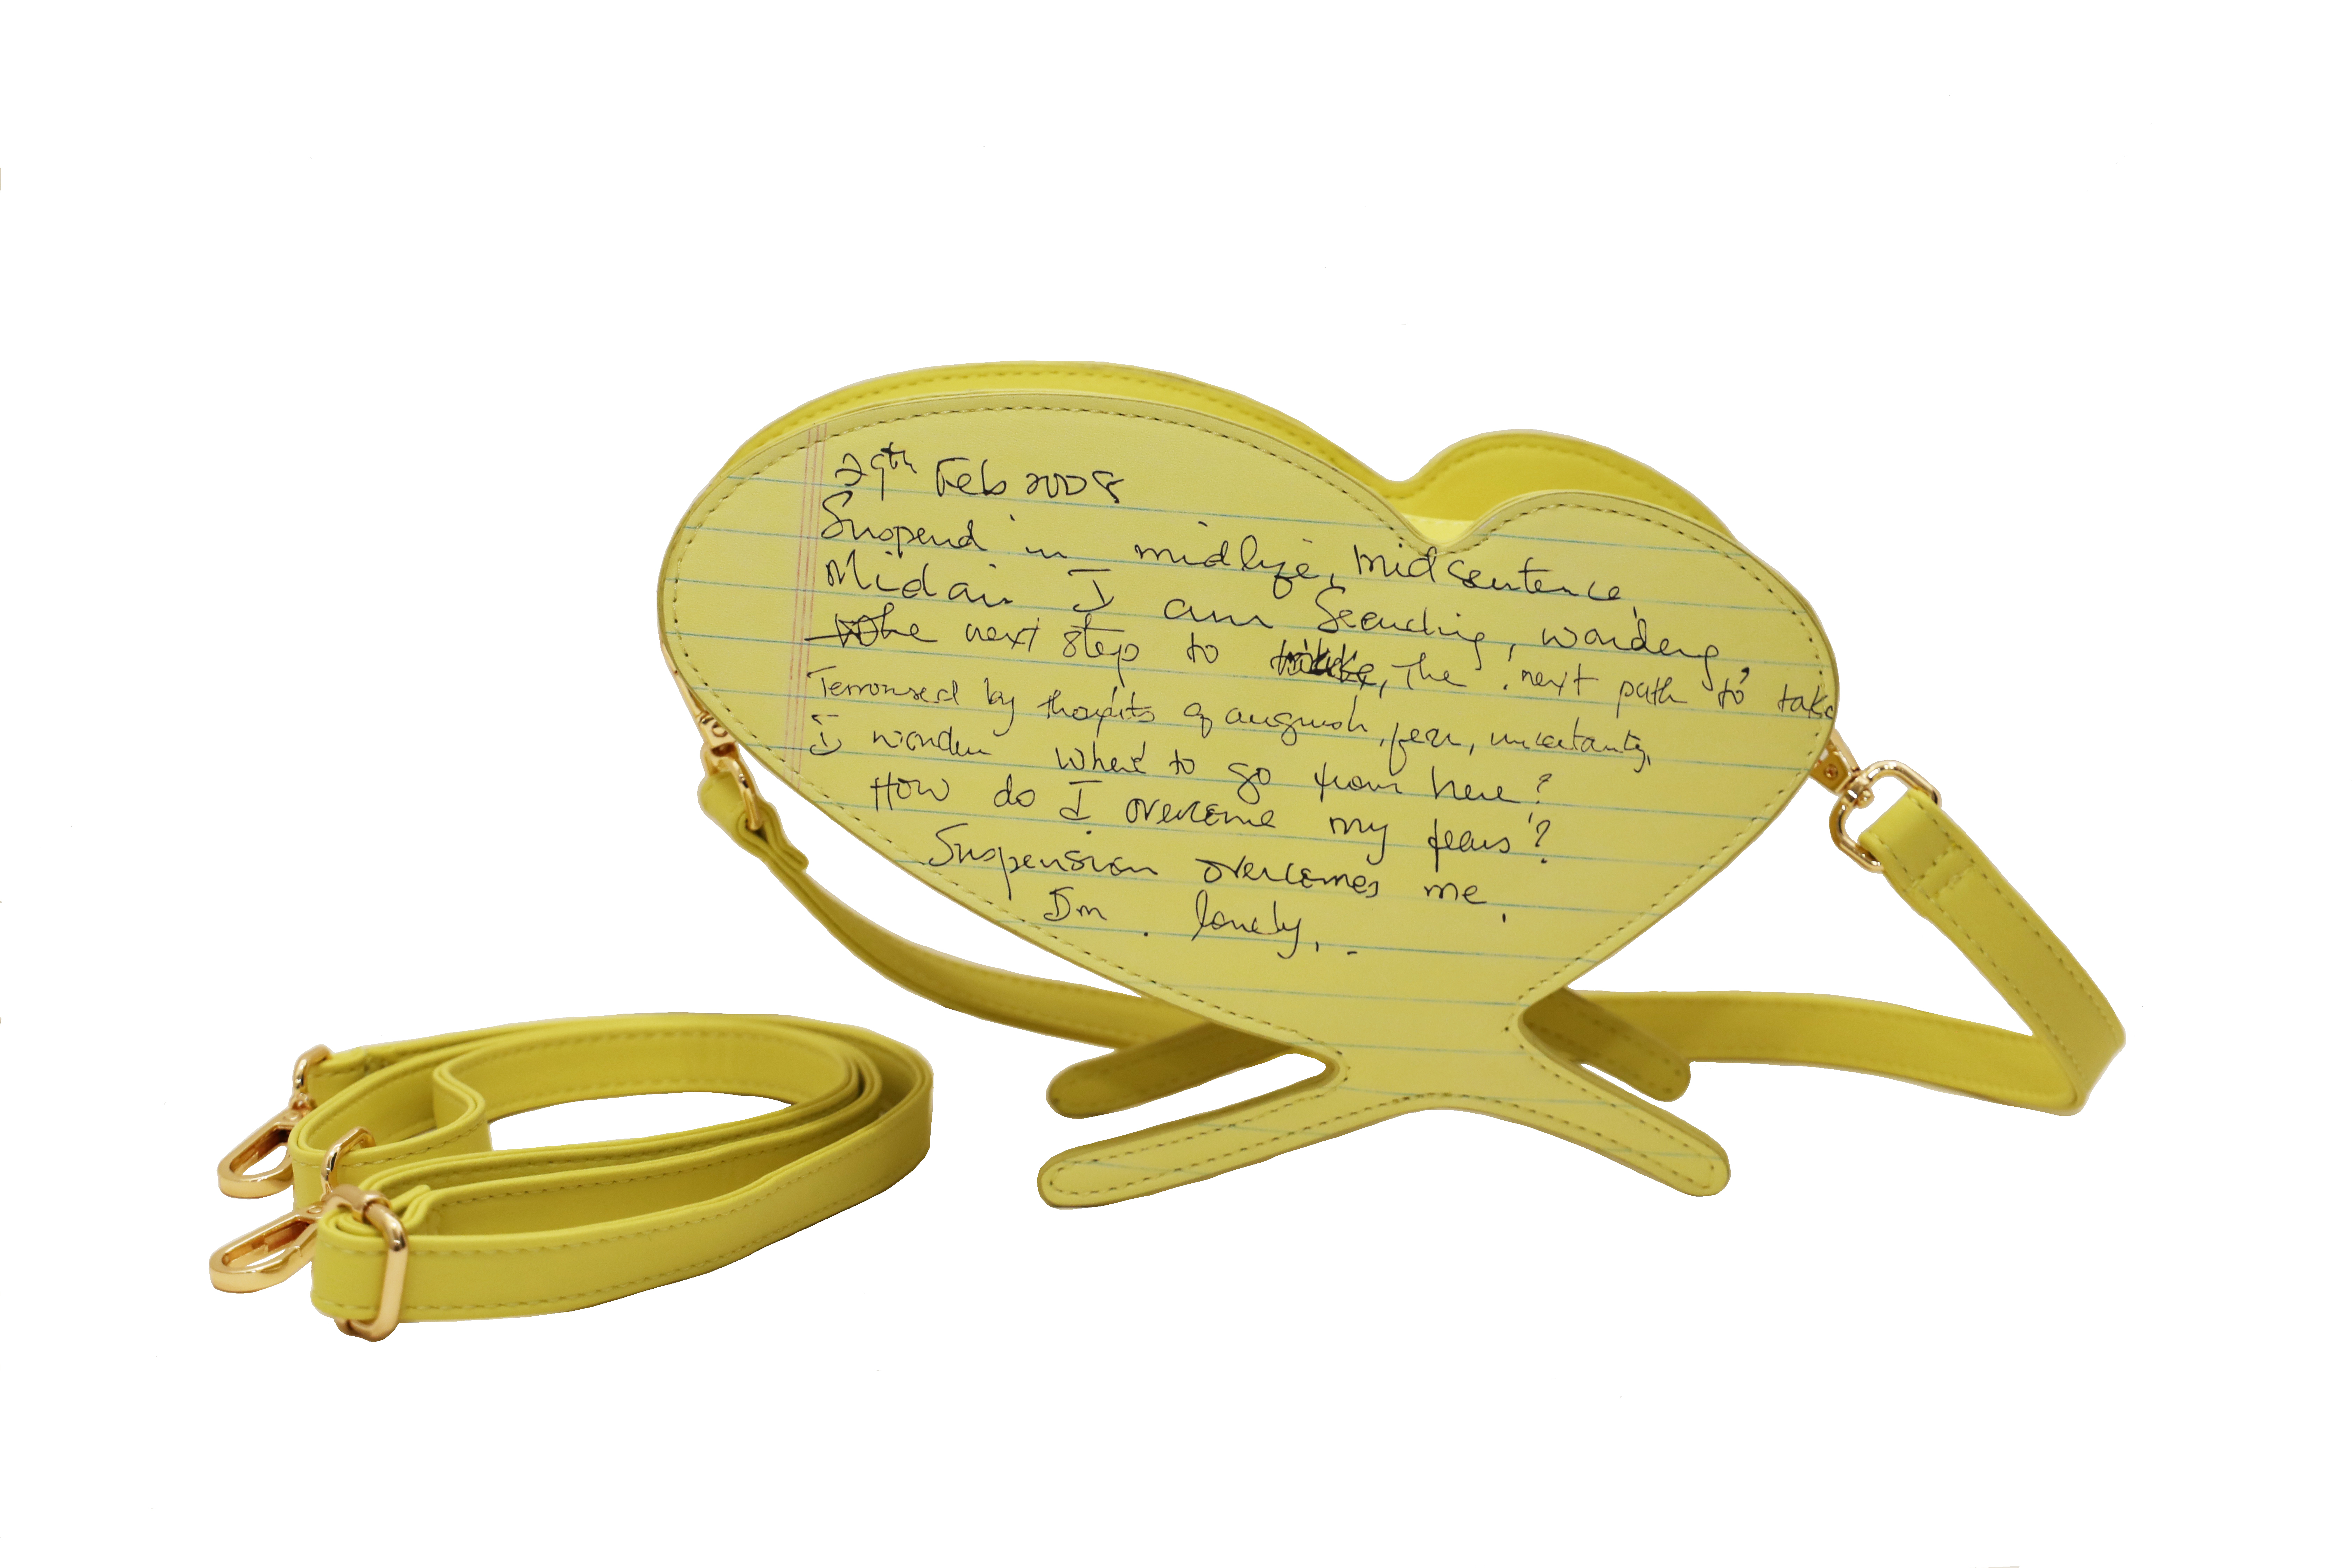 29th Feb 2008
Suspend in midlife, midsentence,
Midair I am Searching, wondering,
the next step to take, The next path to take
Terrorised by thoughts of anguish, fear, uncertainty,
I wonder where to go from here?
How do I overcome my fears?
Suspension overcomes me.
I'm lonely..